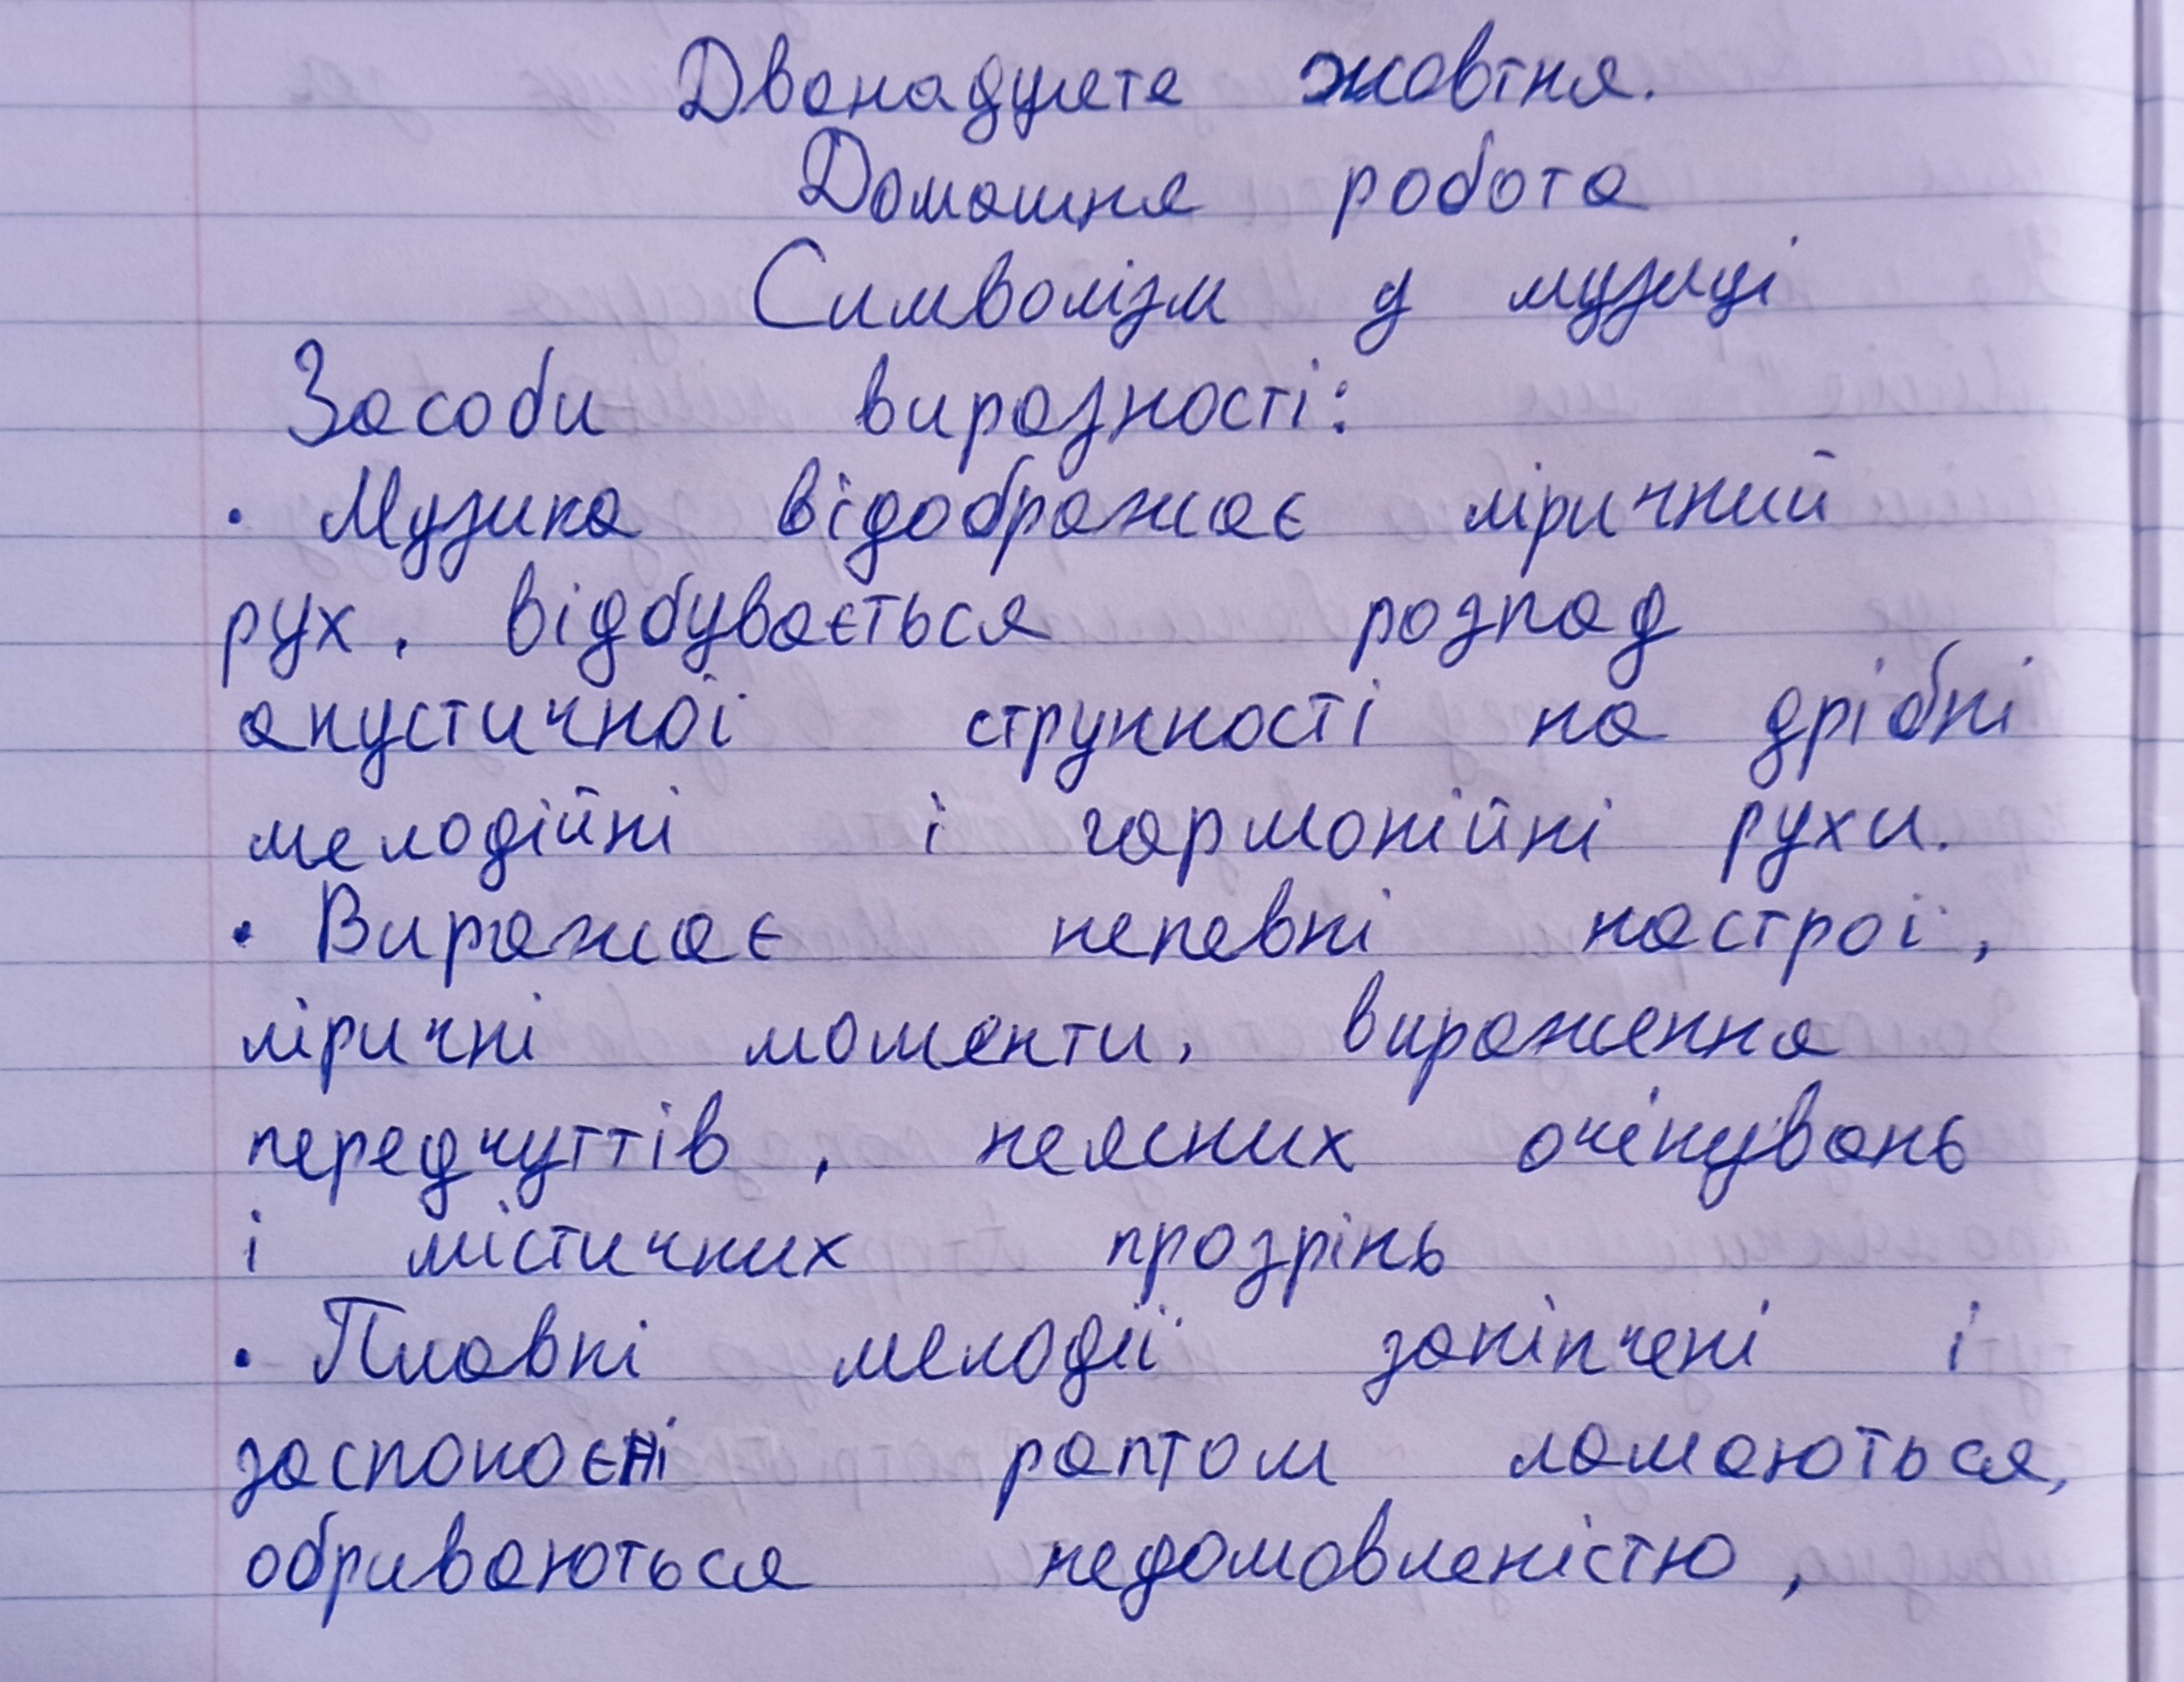 Дванадцяте жовтня.
Домашня робота
Символізм у музиці
Засоби виразності:
• Музика відображає ліричний
рух, відбувається розпад
акустичної стрункості на дрібні
мелодійні і гармонійні рухи.
• Виражає непевні настрої,
ліричні моменти, вираження
передчуттів, неясних очікувань
і містичних прозрінь
• Плавні мелодії закінчені і
заспокоєні раптом ламаються,
обриваються недомовленістю,